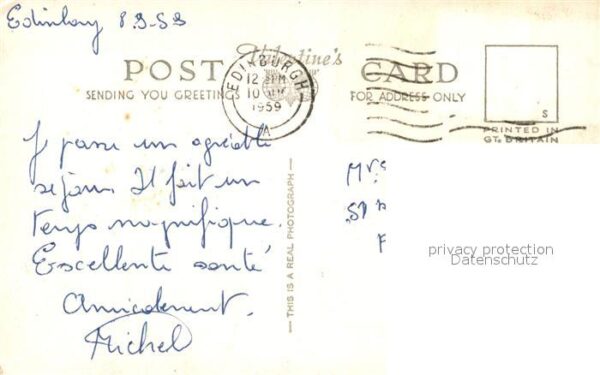 Edinburg 8.9-59
Valentine's
POST CARD
SENDING YOU GREETINGS
FOR ADDRESS ONLY
EDINBURGH
12 PM
10
1959
A
S
PRINTED IN
GT. BRITAIN
J passe un agréable
séjour Il fait un
temps magnifique.
Excellente santé
Amicalement.
Michel
— THIS IS A REAL PHOTOGRAPH —
privacy protection
Datenschutz